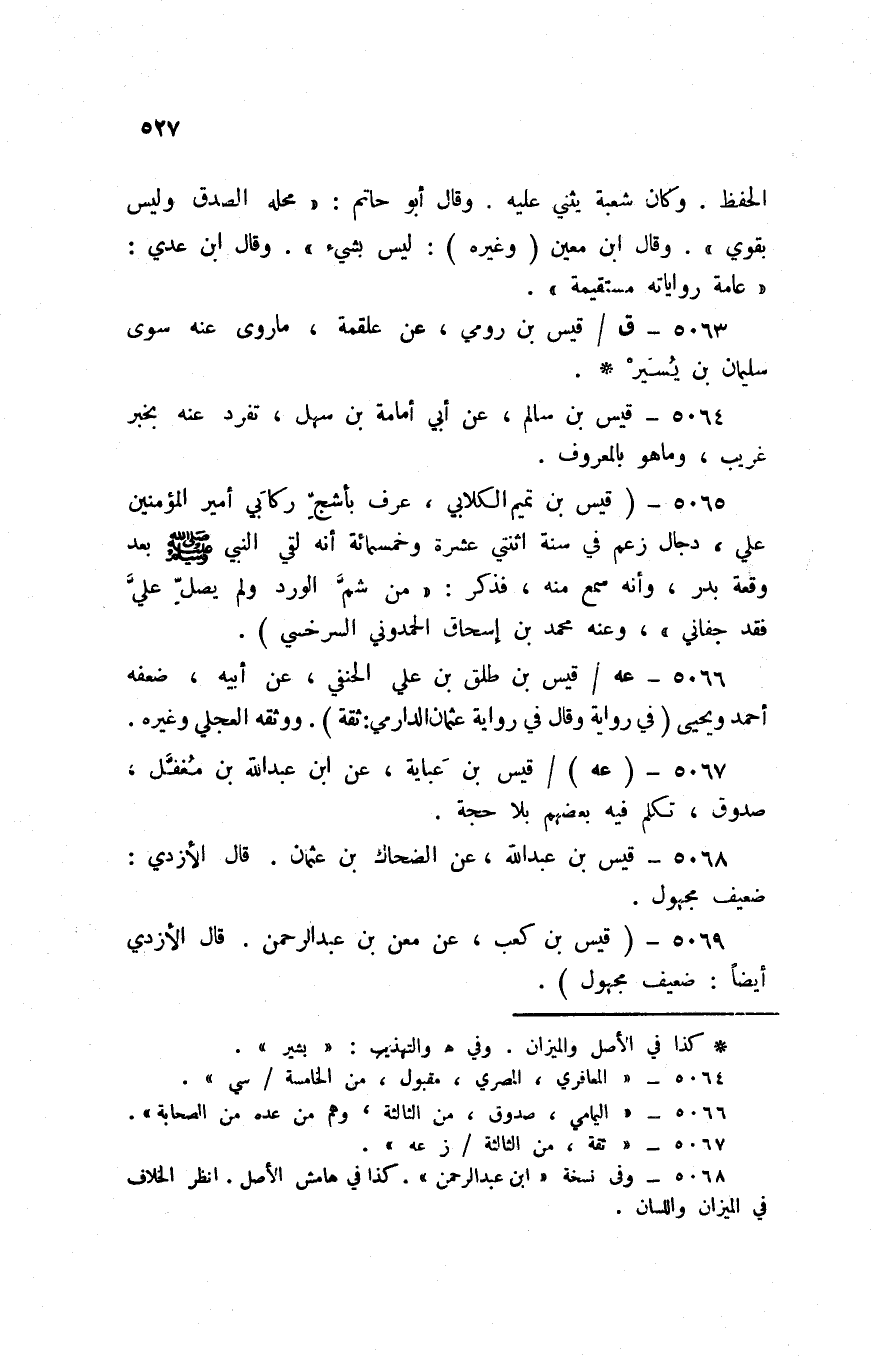 ٥٢٧
الحفظ . وكان شعبة يثني عليه . وقال أبو حاتم : « محله الصدق وليس
بقوي » . وقال ابن معين ( وغيره ) : ليس بشيء » . وقال ابن عدي :
« عامة رواياته مستقيمة » .
٥٠٦٣ – ق / قيس بن رومي ، عن علقمة ، ماروى عنه سوى
سليمان بن يُسَيرْ * .
٥٠٦٤ – قيس بن سالم ، عن أبي أمامة بن سهل ، تفرد عنه بخبر
غريب ، وماهو بالمعروف .
٥٠٦٥ – ( قيس بن تميم الكلابي ، عرف بأشجِّ ركابَي أمير المؤمنين
علي ، دجال زعم في سنة اثنتي عشرة وخمسمائة أنه لقي النبي ﷺ بعد
وقعة بدر ، وأنه سمع منه ، فذكر : « من شمَّ الورد ولم يصلِّ عليَّ
فقد جفاني » ، وعنه محمد بن إسحاق الحمدوني السرخسي ) .
٥٠٦٦ – عه / قيس بن طلق بن علي الحنفي ، عن أبيه ، ضعفه
أحمد ويحيى ( في رواية وقال في رواية عثمان الدارمي: ثقة ) . ووثقه العجلي وغيره .
٥٠٦٧ – ( عه ) / قيس بن عَباية ، عن ابن عبدالله بن مُغفَّل ،
صدوق ، تكلم فيه بعضهم بلا حجة .
٥٠٦٨ – قيس بن عبدالله ، عن الضحاك بن عثمان . قال الأزدي :
ضعيف مجهول .
٥٠٦٩ – ( قيس بن كعب ، عن معن بن عبدالرحمن . قال الأزدي
أيضاً : ضعيف مجهول ) .
* كذا في الأصل والميزان . وفي ه والتهذيب : « بشير » .
٥٠٦٤ – « المعافري ، المصري ، مقبول ، من الخامسة / سي » .
٥٠٦٦ – « اليمامي ، صدوق ، من الثالثة ، وهم من عده من الصحابة » .
٥٠٦٧ – « ثقة ، من الثالثة / ز عه » .
٥٠٦٨ – وفى نسخة « ابن عبدالرحمن » . كذا في هامش الأصل . انظر الخلاف
في الميزان واللسان .